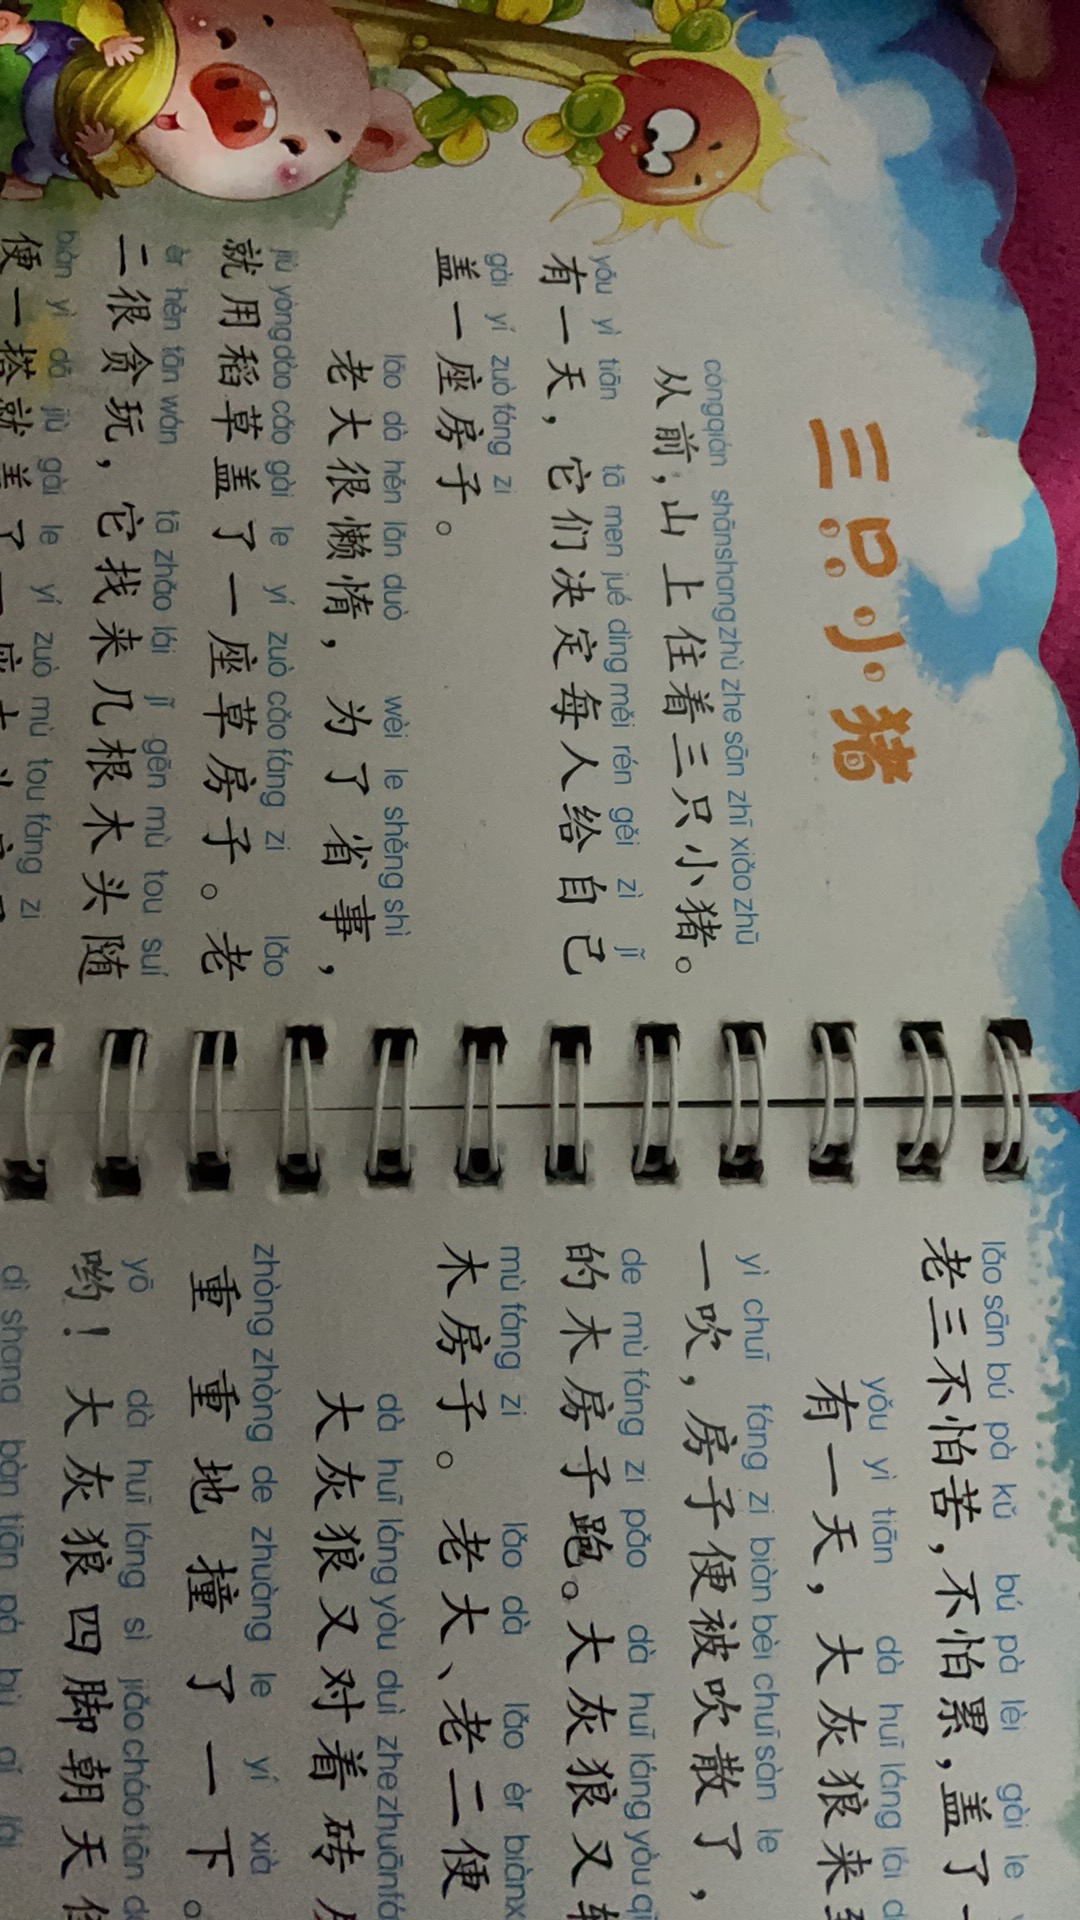 三只小猪
cóngqián shānshang zhù zhe sān zhī xiǎo zhū
从前，山上住着三只小猪。
yǒu yì tiān tā men jué dìng měi rén gěi zì jǐ
有一天，它们决定每人给自己
gài yí zuò fáng zi
盖一座房子。
lǎo dà hěn lǎn duò wèi le shěng shì
老大很懒惰，为了省事，
jiù yòng dào cǎo gài le yí zuò cǎo fáng zi lǎo
就用稻草盖了一座草房子。老
èr hěn tān wán tā zhǎo lái jǐ gēn mù tou suí
二很贪玩，它找来几根木头随
biàn yì dā jiù gài le yí zuò mù tou fáng zi
便一搭就盖了一座
lǎo sān bú pà kǔ bú pà lèi gài le
老三不怕苦，不怕累，盖了一
yǒu yì tiān dà huī láng lái
有一天，大灰狼来
yì chuī fáng zi biàn bèi chuī sàn le
一吹，房子便被吹散了，
de mù fáng zi pǎo dà huī láng yòu
的木房子跑。大灰狼又
mù fáng zi lǎo dà lǎo èr biàn
木房子。老大、老二便
dà huī láng yòu duì zhe zhuān
大灰狼又对着砖
zhòng zhòng de zhuàng le yí xià
重重地撞了一下。
yō dà huī láng sì jiǎo cháo tiān
哟！大灰狼四脚朝天
dì shang bàn tiān pá bù qǐ lái